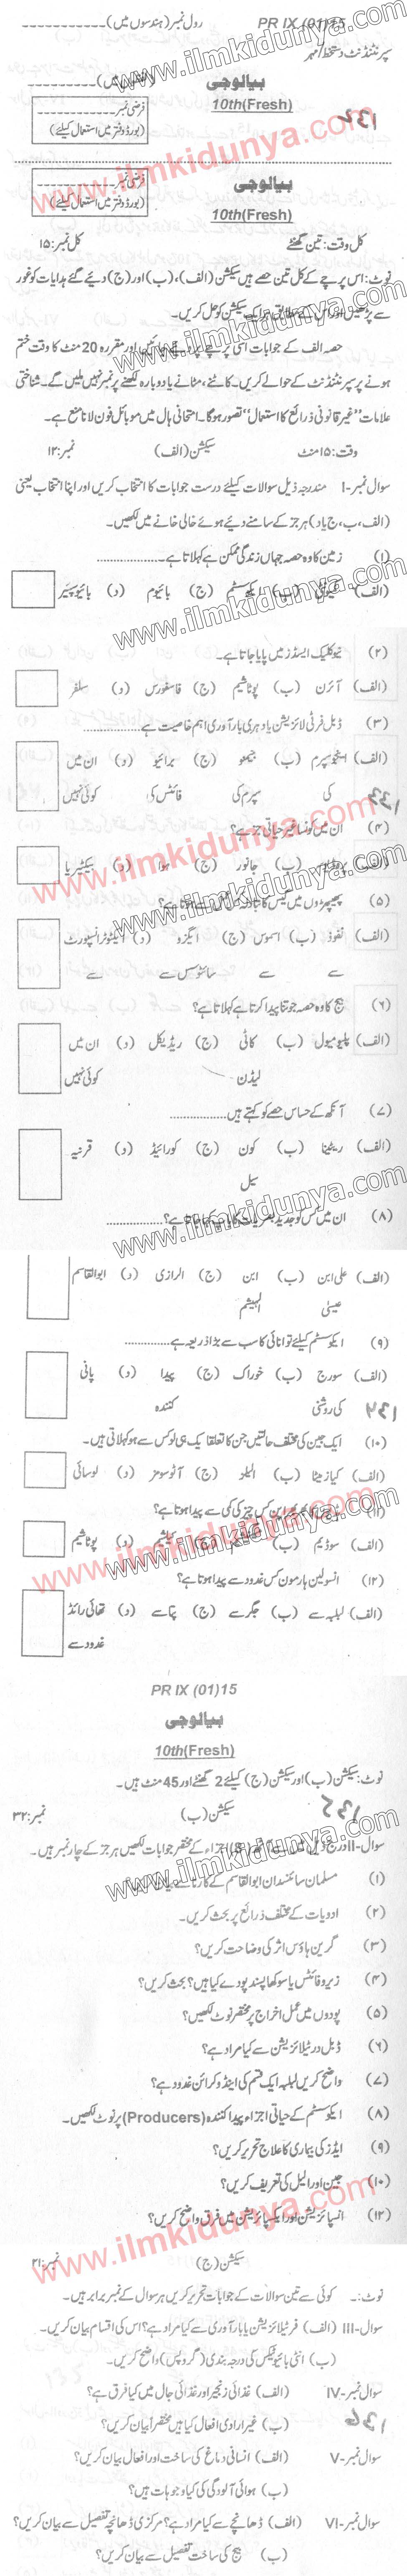 PR IX (01)15
رول نمبر (ہندسوں میں)
سپرنٹنڈنٹ دستخط/مہر
بیالوجی
10th(Fresh)
فرضی نمبر
(بورڈ دفتر میں استعمال کیلئے)
بیالوجی
10th(Fresh)
فرضی نمبر
(بورڈ دفتر میں استعمال کیلئے)
کل وقت: تین گھنٹے کل نمبر: ۱۵
نوٹ: اس پرچے کے کل تین حصے ہیں سیکشن (الف)، (ب) اور (ج) دیئے گئے ہدایات کو غور
سے پڑھیں اور اس کے مطابق ہر ایک سیکشن کو حل کریں۔
حصہ الف کے جوابات اسی پرچے پر دیئے جائیں اور مقررہ 20 منٹ کا وقت ختم
ہونے پر سپرنٹنڈنٹ کے حوالے کریں۔ کاٹنے، مٹانے یا دوبارہ لکھنے پر نمبر نہیں ملیں گے۔ شناختی
علامات "غیر قانونی ذرائع کا استعمال" تصور ہوگا۔ امتحانی ہال میں موبائل فون لانا منع ہے۔
وقت: ۱۵ منٹ سیکشن (الف) نمبر: ۱۲
سوال نمبر-I مندرجہ ذیل سوالات کیلئے درست جوابات کا انتخاب کریں اور اپنا انتخاب یعنی
(الف، ب، ج یا د) ہر جز کے سامنے دیئے ہوئے خالی خانے میں لکھیں۔
(۱) زمین کا وہ حصہ جہاں زندگی ممکن ہے کہلاتا ہے۔
(الف) کمیونٹی (ب) ایکوسسٹم (ج) بائیوم (د) بائیوسفیئر
(۲) نیوکلیک ایسڈز میں پایا جاتا ہے۔
(الف) آئرن (ب) پوٹاشیم (ج) فاسفورس (د) سلفر
(۳) ڈبل فرٹی لائزیشن یا دہری بارآوری اہم خاصیت ہے
(الف) انجیوسپرم کی (ب) جیمنو سپرم کی (ج) برائیو فائٹس کی (د) ان میں کوئی نہیں
(۴) ان میں کونسا غیر حیاتی جز ہے؟
(الف) پروڈیوسر (ب) جانور (ج) ہوا (د) بیکٹیریا
(۵) پھیپھڑوں میں گیس کا تبادلہ ہوتا ہے؟
(الف) نفوذ سے (ب) اسموس سے (ج) ایگزو سائٹوسس سے (د) ایکٹو ٹرانسپورٹ سے
(۶) بیج کا وہ حصہ جو تنا پیدا کرتا ہے کہلاتا ہے؟
(الف) پلیومیول (ب) کاٹی لیڈن (ج) ریڈیکل (د) ان میں کوئی نہیں
(۷) آنکھ کے حساس حصے کو کہتے ہیں
(الف) ریٹینا (ب) کون سیل (ج) کورائیڈ (د) قرنیہ
(۸) ان میں کس کو جدید بصریات کا بانی کہا جاتا ہے؟
(الف) علی ابن عیسیٰ (ب) ابن الہیثم (ج) الرازی (د) ابوالقاسم
(۹) ایکوسسٹم کیلئے توانائی کا سب سے بڑا ذریعہ ہے
(الف) سورج کی روشنی (ب) خوراک (ج) پیدا کنندہ (د) پانی
(۱۰) ایک جین کی مختلف حالتیں جن کا تعلق ایک ہی لوکس سے ہو کہلاتی ہیں۔
(الف) کیازمیٹا (ب) الیلو (ج) آٹوسومز (د) لوسائی
(۱۱) کس چیز کی کمی سے پیدا ہوتا ہے؟
(الف) سوڈیم (ب) (ج) کیلشیم (د) پوٹاشیم
(۱۲) انسولین ہارمون کس غدود سے پیدا ہوتا ہے؟
(الف) لبلبہ سے (ب) جگر سے (ج) پتا سے (د) تھائی رائڈ غدود سے
PR IX (01)15
بیالوجی
10th(Fresh)
نوٹ: سیکشن (ب) اور سیکشن (ج) کیلئے 2 گھنٹے اور 45 منٹ ہیں۔
سیکشن (ب) نمبر: ۳۲
سوال-II درج ذیل میں سے آٹھ (8) اجزاء کے مختصر جوابات لکھیں ہر جز کے چار نمبر ہیں۔
(۱) مسلمان سائنسدان ابوالقاسم کے کارنامے
(۲) ادویات کے مختلف ذرائع پر بحث کریں۔
(۳) گرین ہاؤس اثر کی وضاحت کریں؟
(۴) زیروفائٹس یا سوکھا پسند پودے کیا ہیں؟ بحث کریں؟
(۵) پودوں میں عمل اخراج پر مختصر نوٹ لکھیں؟
(۶) ڈبل درٹیلائزیشن سے کیا مراد ہے؟
(۷) واضح کریں لبلبہ ایک قسم کی اینڈوکرائن غدود ہے؟
(۸) ایکوسسٹم کے حیاتی اجزاء پیدا کنندہ (Producers) پر نوٹ لکھیں۔
(۹) ایڈز کی بیماری کا علاج تحریر کریں؟
(۱۰) جین اور الیل کی تعریف کریں؟
(۱۲) انسپائریشن اور ایکسپائریشن میں فرق واضح کریں؟
سیکشن (ج) نمبر: ۲۱
نوٹ:۔ کوئی سے تین سوالات کے جوابات تحریر کریں ہر سوال کے نمبر برابر ہیں۔
سوال-III (الف) فرٹیلائزیشن یا بارآوری سے کیا مراد ہے؟ اس کی اقسام بیان کریں۔
(ب) انٹی بائیوٹیکس کی درجہ بندی (گروپس) واضح کریں۔
سوال نمبر-IV (الف) غذائی زنجیر اور غذائی جال میں کیا فرق ہے؟
(ب) غیر ارادی افعال کیا ہیں مختصراً بیان کریں؟
سوال نمبر-V (الف) انسانی دماغ کی ساخت اور افعال بیان کریں؟
(ب) ہوائی آلودگی کی کیا وجوہات ہیں؟
سوال نمبر-VI (الف) ڈھانچے سے کیا مراد ہے؟ مرکزی ڈھانچہ تفصیل سے بیان کریں؟
(ب) بیج کی ساخت تفصیل سے بیان کریں؟
www.ilmkidunya.com